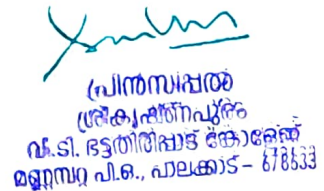 പ്രിൻസിപ്പൽ
ശ്രീകൃഷ്ണപുരം
വി.ടി. ഭട്ടതിരിപ്പാട് കോളേജ്
മണ്ണമ്പറ്റ പി.ഒ., പാലക്കാട് - 678633